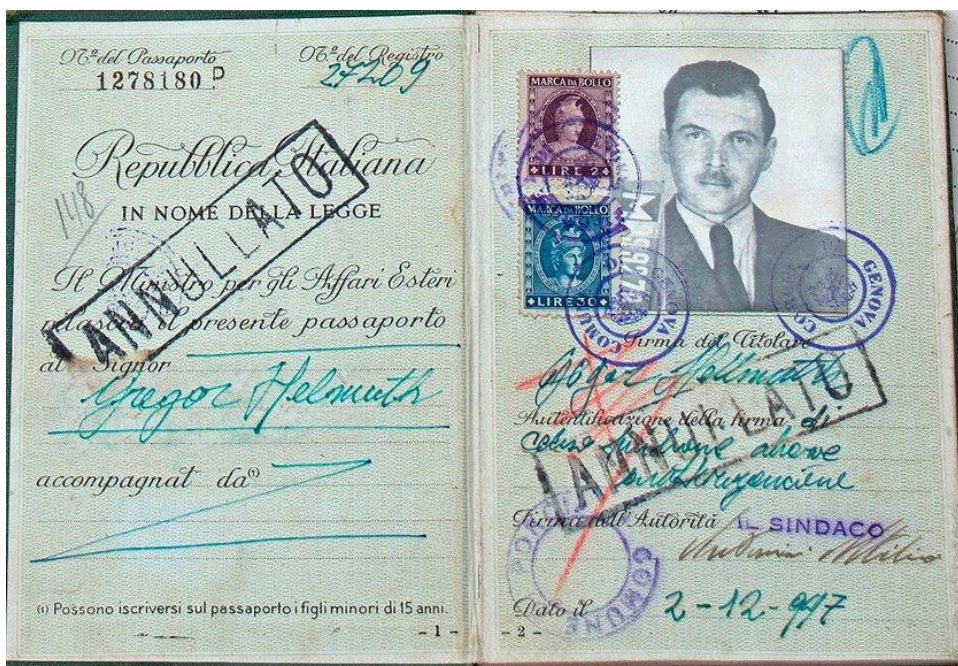 N.º del Passaporto
N.º del Registro
1278180 P
Repubblica Italiana
148
IN NOME DELLA LEGGE
ANNULLATO
Il Ministro per gli Affari Esteri
rilascia il presente passaporto
al Signor
Gregor Helmuth
accompagnat da(1)
(1) Possono iscriversi sul passaporto i figli minori di 15 anni.
- 1 -
MARCA DA BOLLO
LIRE 2
MARCA DA BOLLO
LIRE 30
GENOVA
COMUNE
GENOVA
Firma del Titolare
Hellmuth
Autentificazione della firma di
ANNULLATO
Firma dell'Autorità IL SINDACO
COMUNE
Dato il 2-12-947
- 2 -